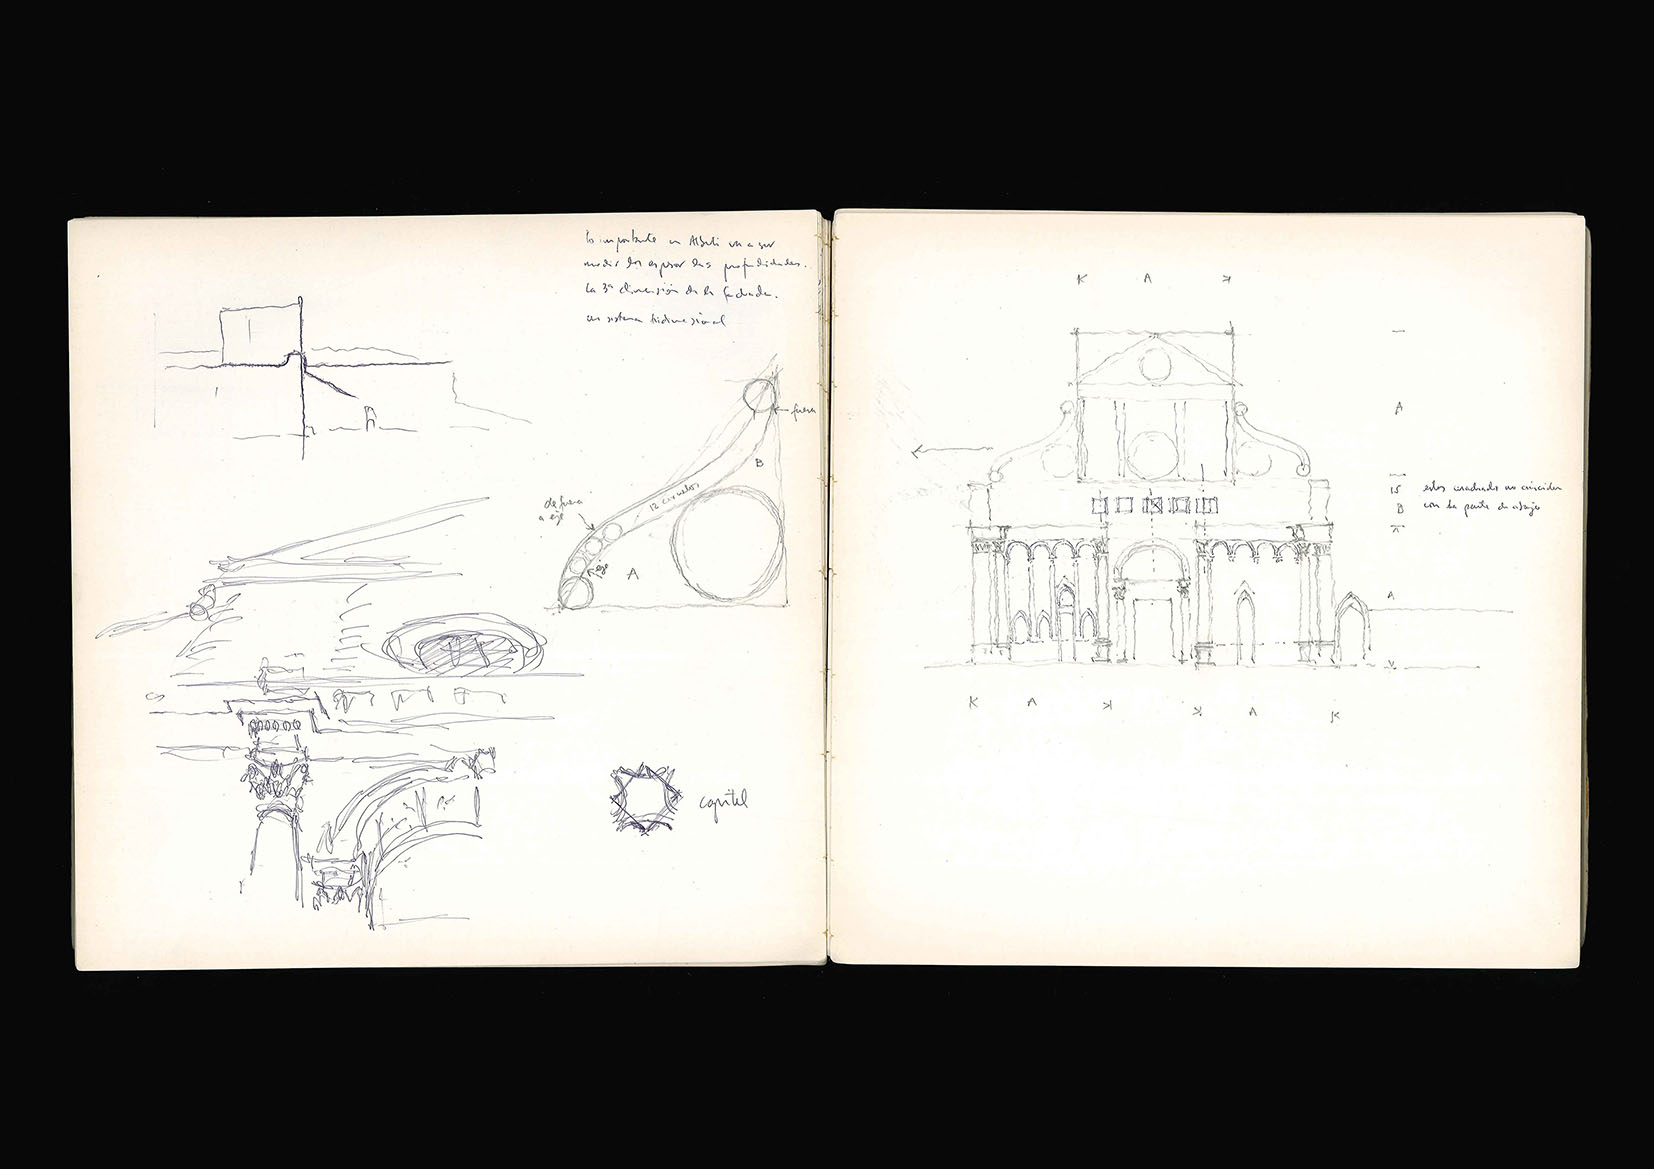 lo importante en Alberti va a ser
medir los espesores las profundidades.
La 3ª dimensión de la fachada.
un sistema tridimensional
fuera
B
12 circulos
de fuera
a eje
eje
A
capitel
K A K
A
15
B
estos cuadrados no coinciden
con la parte de abajo
A
K A K K A K